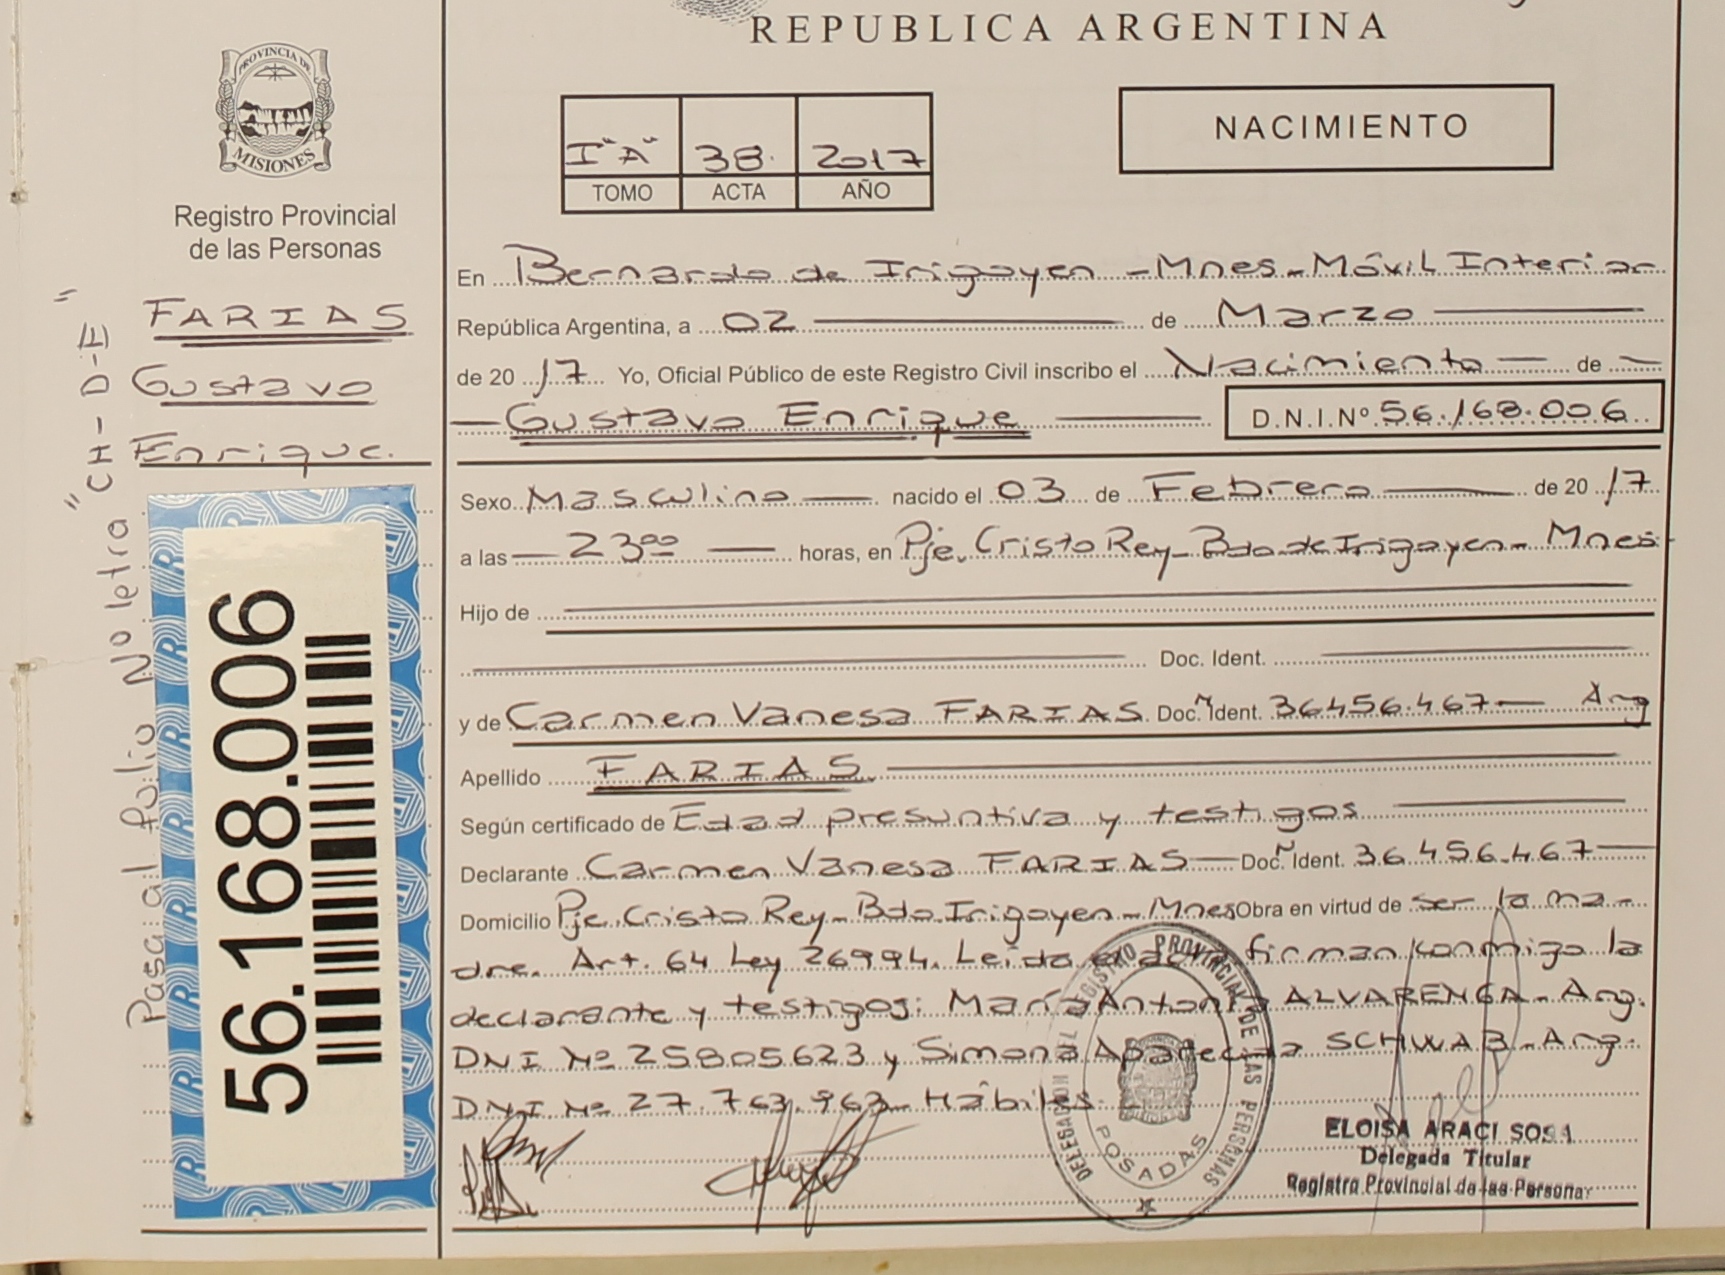 REPUBLICA ARGENTINA
PROVINCIA DE
MISIONES
Registro Provincial
de las Personas
FARIAS
Gustavo
Enrique.
Pasa al folio Nº letra "CH-D-E"
56.168.006
I "A" 38. 2017
TOMO ACTA AÑO
NACIMIENTO
En Bernardo de Irigoyen - Mnes - Móvil Interior
República Argentina, a 02 de Marzo
de 2017 Yo, Oficial Público de este Registro Civil inscribo el Nacimiento de
Gustavo Enrique D.N.I.Nº 56.168.006
Sexo Masculino nacido el 03 de Febrero de 2017
a las 23⁰⁰ horas, en Pje. Cristo Rey - Bdo de Irigoyen - Mnes
Hijo de
Doc. Ident.
y de Carmen Vanesa FARIAS Doc. Ident. 36456.467 Arg
Apellido FARIAS
Según certificado de Edad presuntiva y testigos
Declarante Carmen Vanesa FARIAS Doc. Ident. 36.456.467
Domicilio Pje. Cristo Rey - Bdo Irigoyen - Mnes Obra en virtud de ser la ma-
dre. Art. 64 Ley 26994. Leída el acta firman conmigo la
declarante y testigos: María Antonia ALVARENGA - Arg.
DNI Nº 25805623 y Simona Aparecida SCHWAB - Arg.
DNI Nº 27.763.963 - Hábiles.
DELEGACION DEL REGISTRO PROVINCIAL DE LAS PERSONAS
POSADAS
ELOISA ARACI SOSA
Delegada Titular
Registro Provincial de las Personas